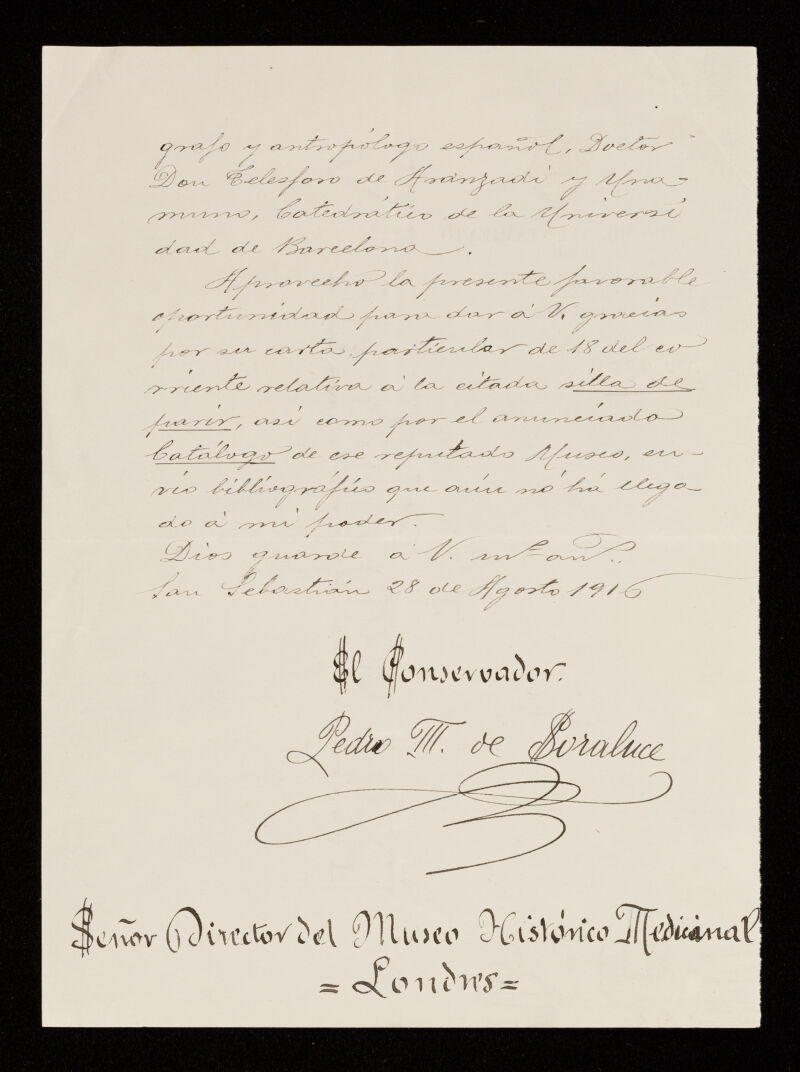 grafo y antropólogo español, Doctor
Don Telesforo de Aranzadi y Una-
muno, Catedrático de la Universi
dad de Barcelona.
Aprovecho la presente favorable
oportunidad para dar á V. gracias
por su carta particular de 18 del co
rriente relativa á la citada silla de
parir, así como por el anunciado
Catálogo de ese reputado Museo, en-
vío bibliográfico que aún nó há llega-
do á mi poder.
Dios guarde á V. ms. ans.
San Sebastián 28 de Agosto 1916
El Conservador.
Pedro M. de Soraluce
Señor Director del Museo Histórico Medicinal
= Londres =